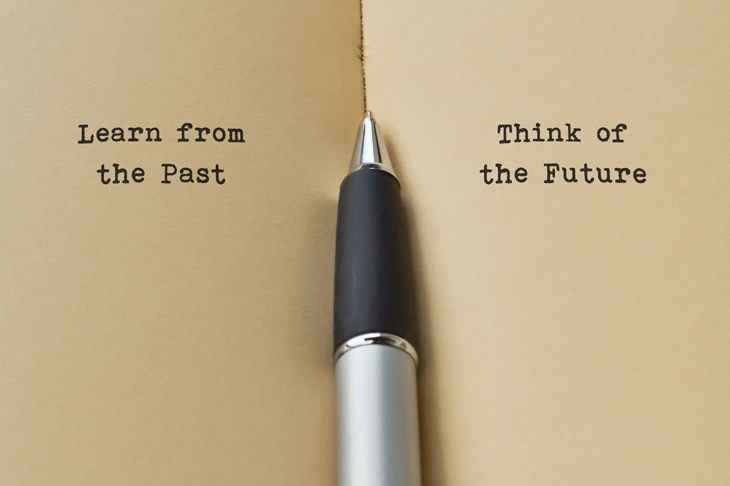 Learn from
the Past
Think of
the Future